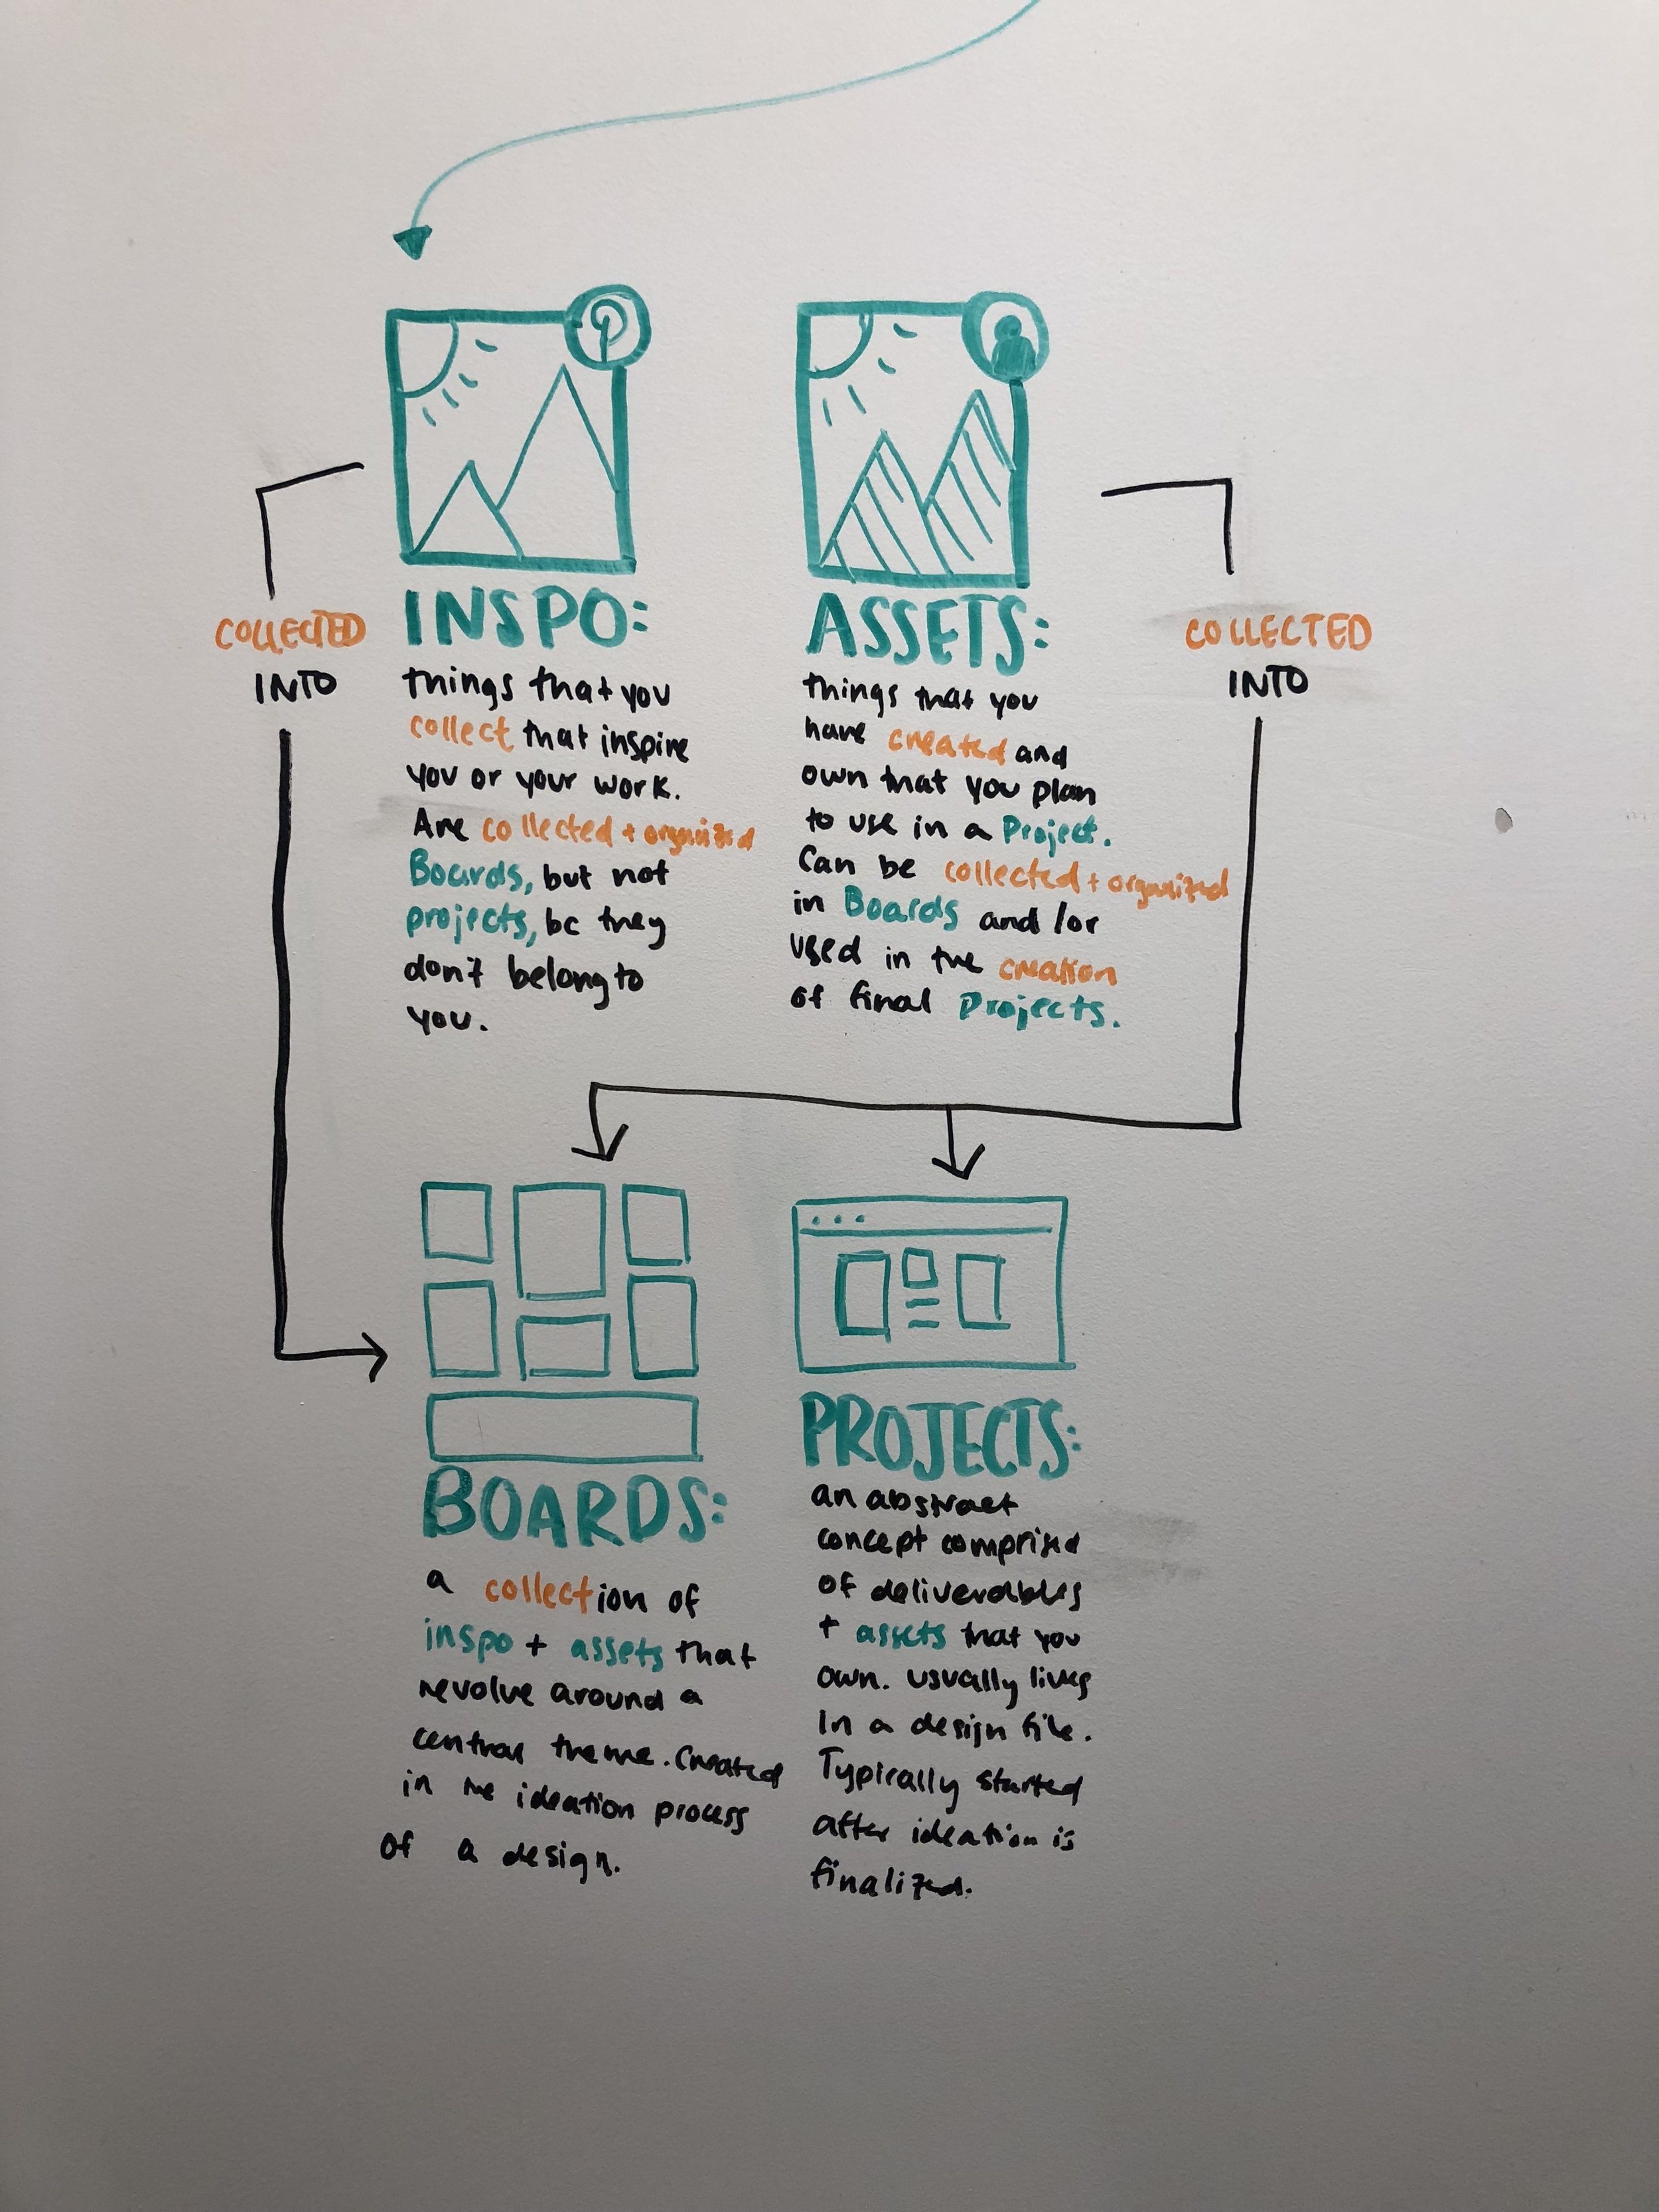 COLLECTED
INTO
INSPO:
things that you
collect that inspire
you or your work.
Are collected + organized
Boards, but not
projects, bc they
don't belong to
you.
ASSETS:
things that you
have created and
own that you plan
to use in a Project.
Can be collected + organized
in Boards and /or
used in the creation
of final Projects.
COLLECTED
INTO
BOARDS:
a collection of
inspo + assets that
revolve around a
central theme. Created
in the ideation process
of a design.
PROJECTS:
an abstract
concept comprised
of deliverables
+ assets that you
own. usually lives
in a design file.
Typically started
after ideation is
finalized.